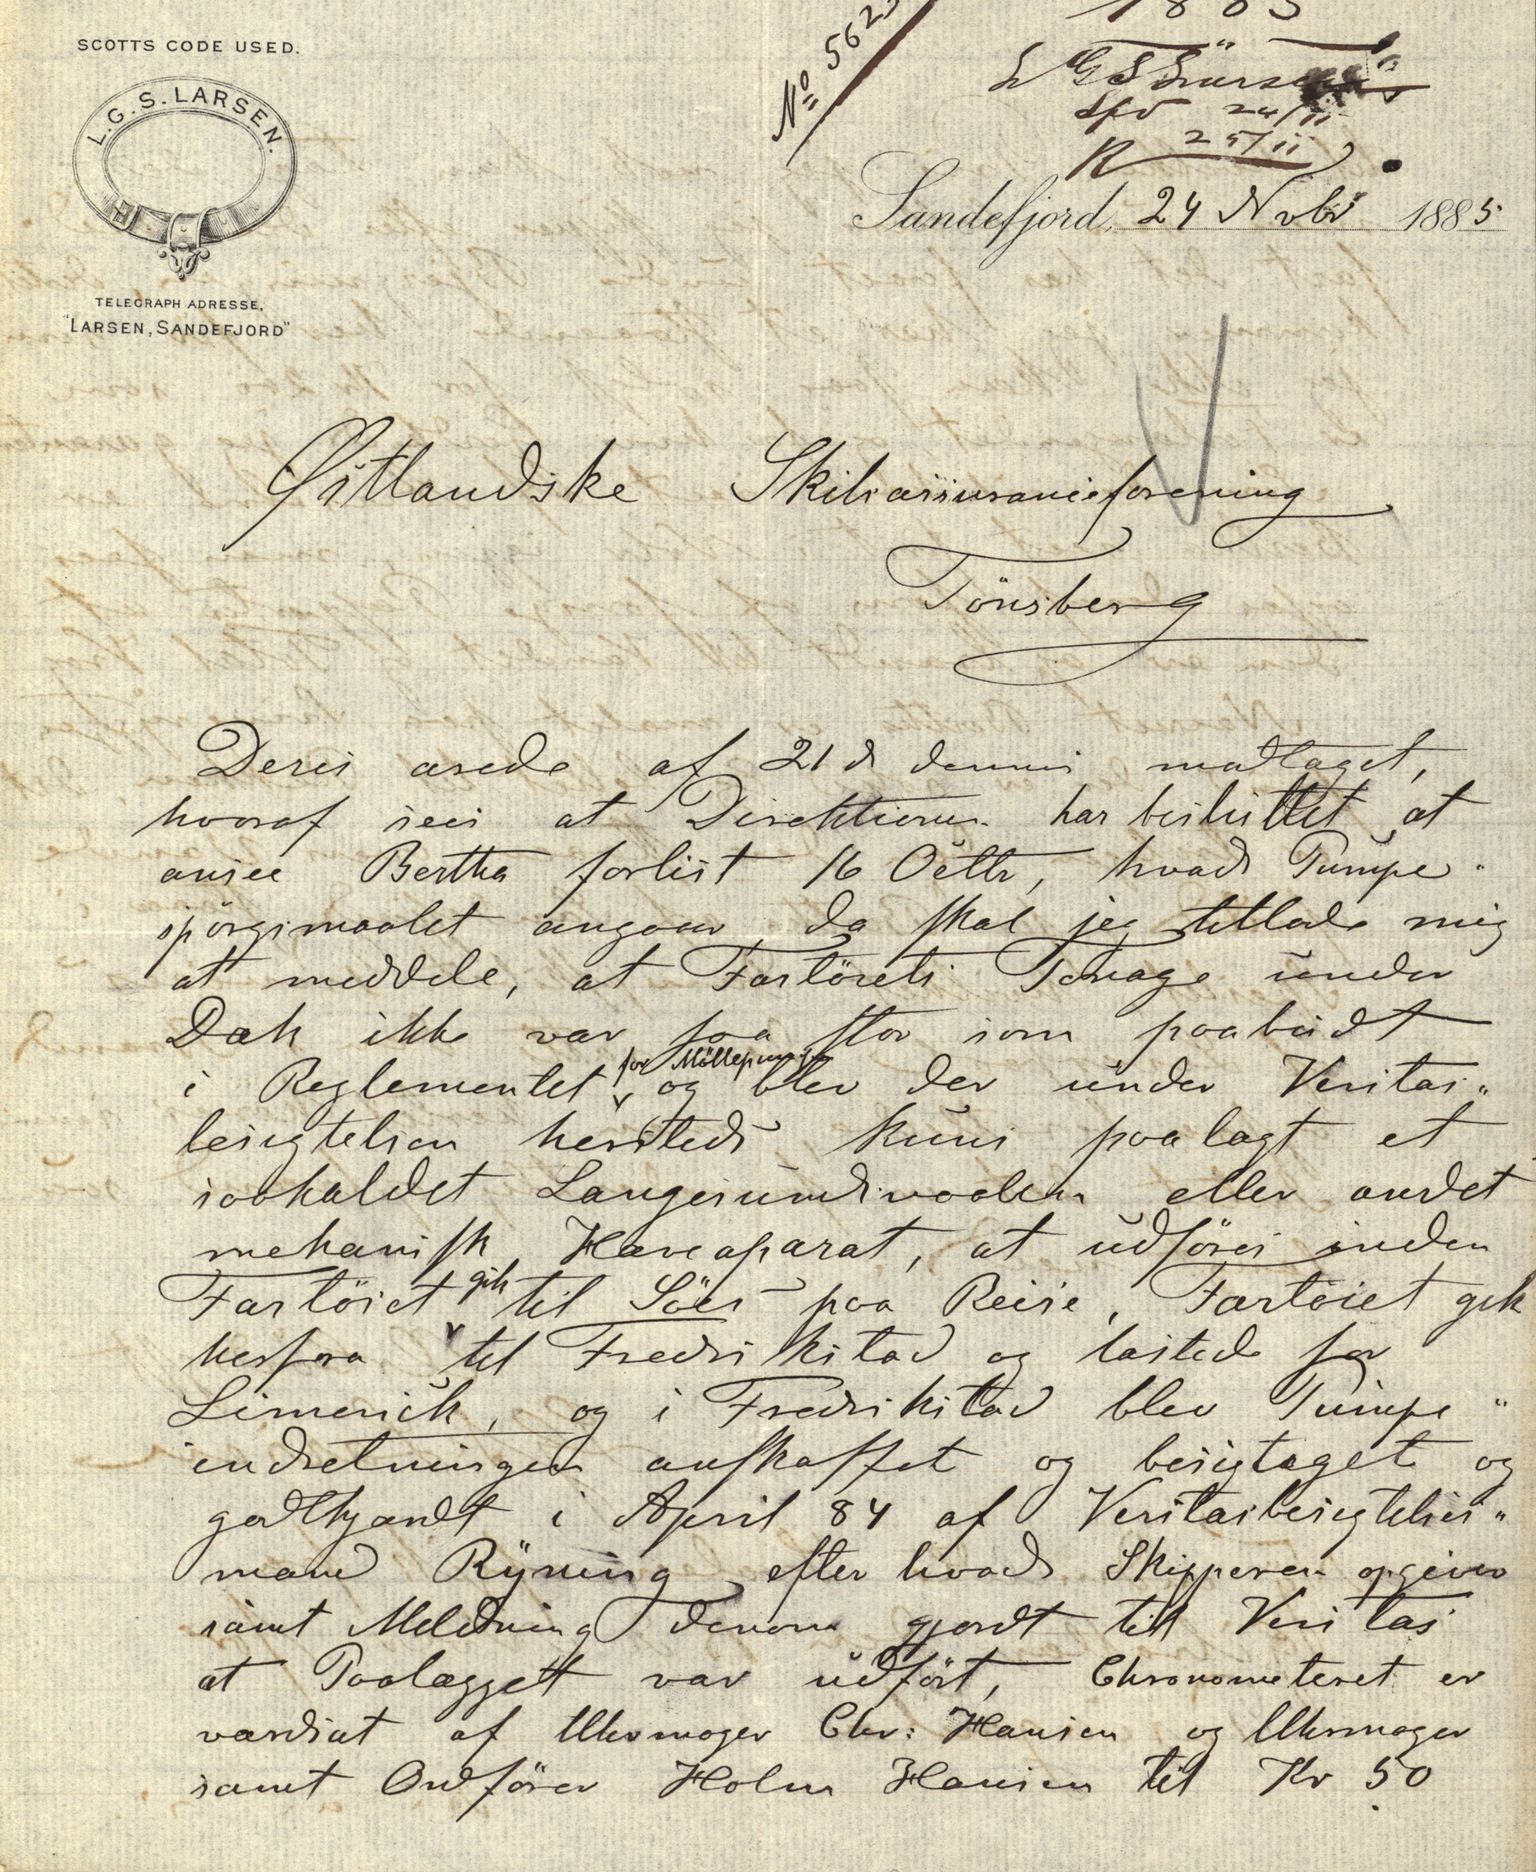 SCOTTS CODE USED.
L.G.S. LARSEN.
TELEGRAPH ADRESSE,
"LARSEN, SANDEFJORD"
No 5623
1885
L G S Larsen
24/11
R 25/11
Sandefjord, 24 Novbr 1885
Østlandske Skibsassuranceforening
Tönsberg
Deres ærede af 21 ds dennes modtaget,
hvoraf sees at Direktionen har besluttet at
ansee Bertha forlist 16 Octbr, hvad Pumpe-
spörgsmaalet angaar, da skal jeg tillade mig
at meddele, at Fartöiets Tonage under
Dæk ikke var saa stor som paabudt
i Reglementet for Möllepumpe og blev der under Veritas-
besigtelsen hersteds kuns paalagt et
saakaldet Langesundsvaaler eller andet
mekanisk Haveaparat, at udföres inden
Fartöiet gik til Söes paa Reise, Fartöiet gik
herfra til Fredrikstad og lastede for
Limerick, og i Fredrikstad blev Pumpe-
indretningen anskaffet og besigtaget og
godkjændt i April 84 af Veritasbesigtelses-
mand Ryning efter hvad Skipperen opgiver
samt Meldning derom gjordt till Veritas
at Paalægget var udfört, Chronometeret er
værdsat af Uhrmager Chr: Hansen og Uhrmager
samt Ordförer Holm Hansen til Kr 50